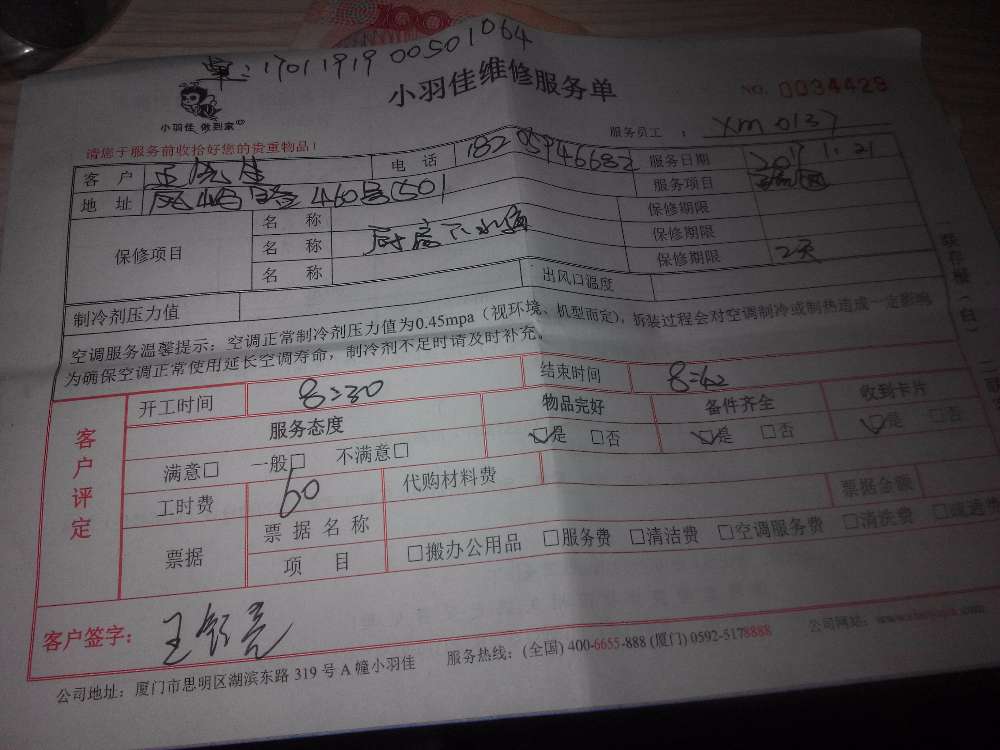 单:1701191900501064
小羽佳维修服务单
NO. 0034428
小羽佳 做到家
服务员工 : XM0137
请您于服务前收拾好您的贵重物品!
客 户 电 话 18205946682 服务日期 2017.1.21
地 址 460号1501 服务项目
保修项目 名 称 厨房下水 保修期限
名 称 保修期限
名 称 保修期限 2天
制冷剂压力值 出风口温度
空调服务温馨提示:空调正常制冷剂压力值为0.45mpa(视环境、机型而定),拆装过程会对空调制冷或制热造成一定影响
为确保空调正常使用延长空调寿命,制冷剂不足时请及时补充。
客户评定
开工时间 8:30 结束时间 8:42
服务态度 物品完好 备件齐全 收到卡片
满意□ 一般□ 不满意□ ☑是 □否 ☑是 □否 ☑是 □否
工时费 60 代购材料费 票据金额
票据 票 据 名 称
项 目 □搬办公用品 □服务费 □清洁费 □空调服务费 □清洗费 □疏通费
客户签字:
公司地址:厦门市思明区湖滨东路 319 号 A 幢小羽佳 服务热线:(全国) 400-6655-888 (厦门) 0592-5178888 公司网站: